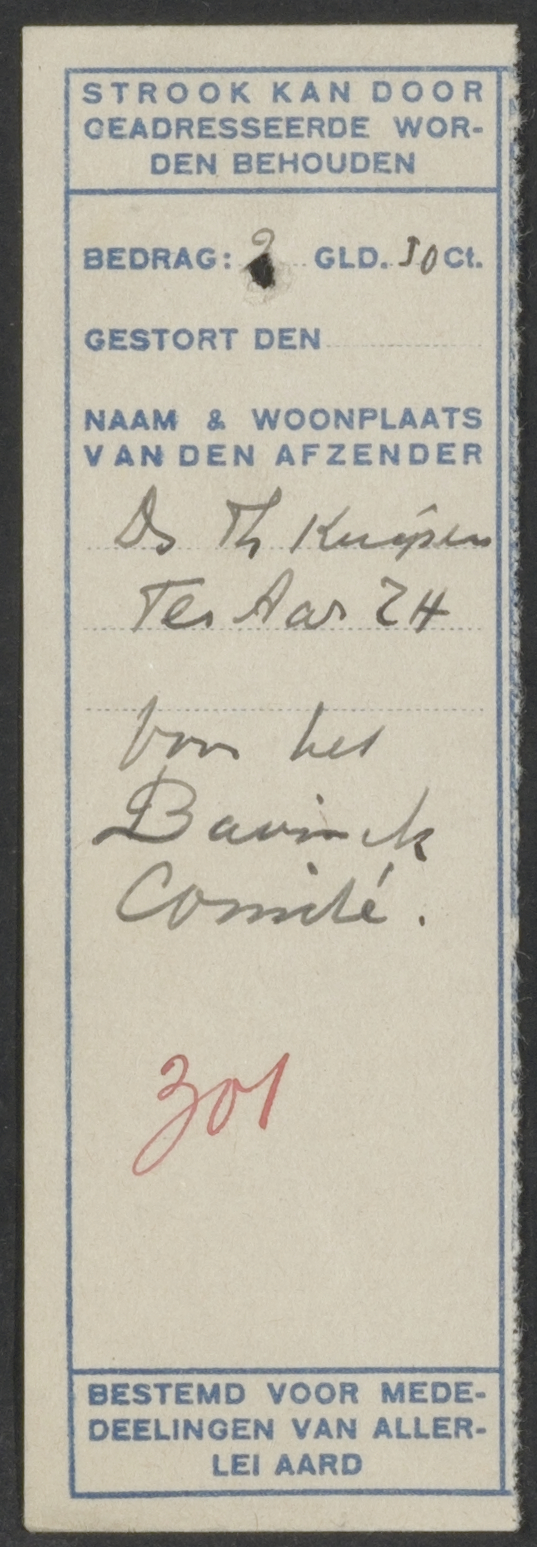 STROOK KAN DOOR
GEADRESSEERDE WOR-
DEN BEHOUDEN
BEDRAG: 2 GLD. 50 Ct.
GESTORT DEN
NAAM & WOONPLAATS
VAN DEN AFZENDER
Ds Th Kuipers
Ter Aar ZH
voor het
Bavinck
Comité.
301
BESTEMD VOOR MEDE-
DEELINGEN VAN ALLER-
LEI AARD